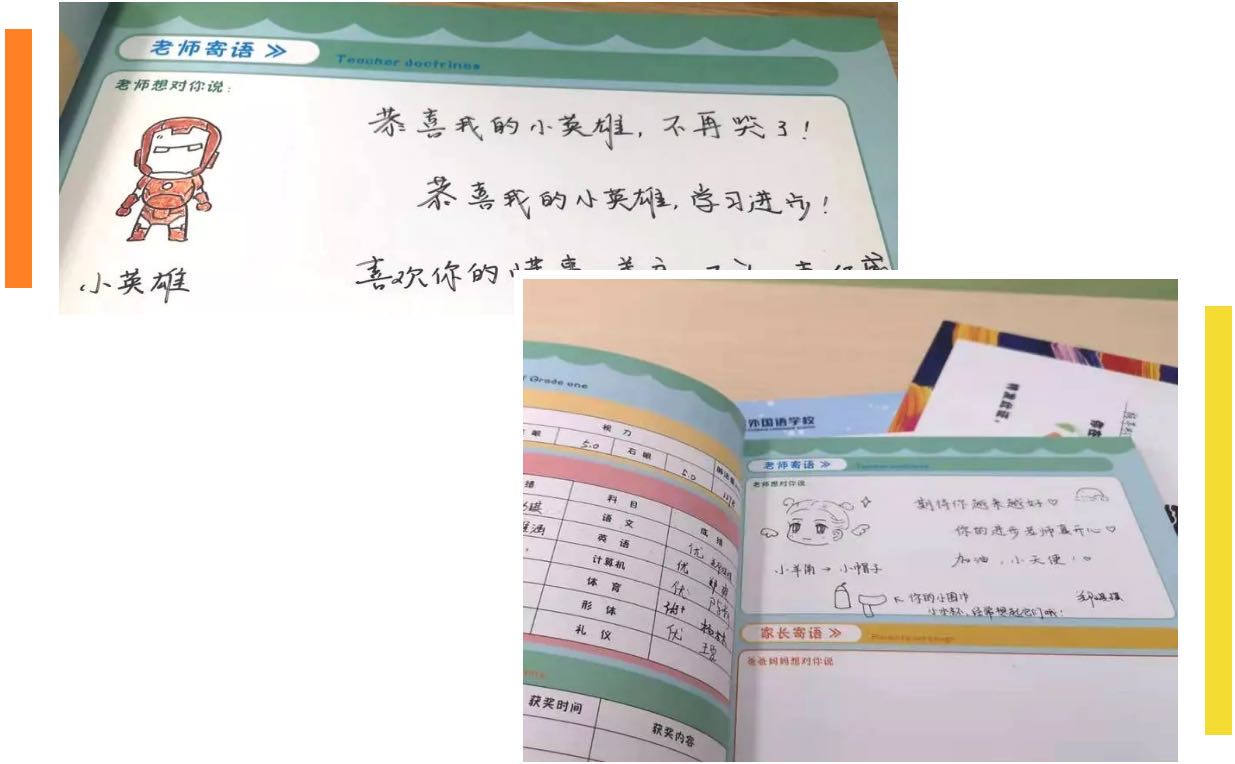 老师寄语 Teacher doctrines
老师想对你说:
恭喜我的小英雄,不再哭了!
恭喜我的小英雄,学习进步!
喜欢你的
小英雄
Grade one
视力
眼 5.0 右眼 5.0
科目 成绩
语文 优
英语 优
计算机 优
体育
形体 优
礼仪
获奖时间 获奖内容
外国语学校
老师寄语
老师想对你说
期待你越来越好♡
你的进步老师真开心♡
加油,小天使!
小羊角→小帽子
你的小围巾
小水杯,经常想起它们哦!
家长寄语
爸爸妈妈想对你说